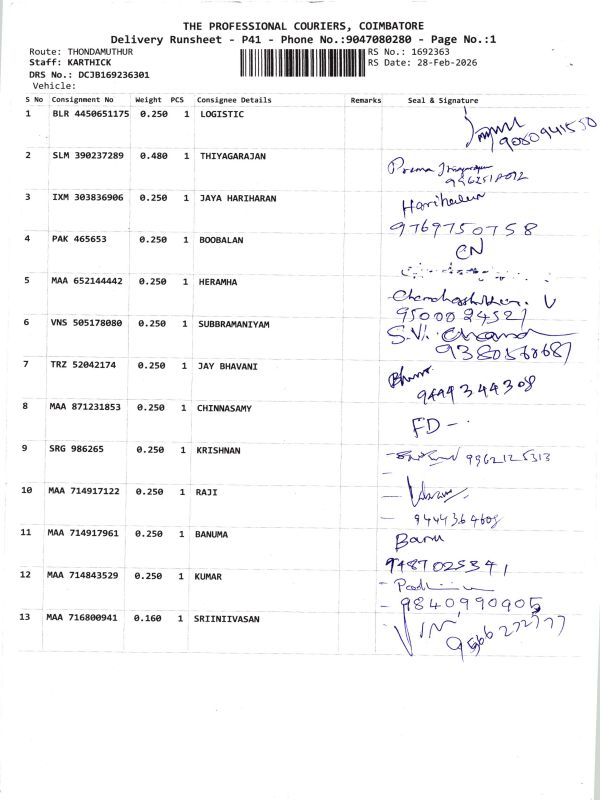 THE PROFESSIONAL COURIERS, COIMBATORE
Delivery Runsheet - P41 - Phone No.:9047080280 - Page No.:1
Route: THONDAMUTHUR RS No.: 1692363
Staff: KARTHICK RS Date: 28-Feb-2026
DRS No.: DCJB169236301
Vehicle:
S No Consignment No Weight PCS Consignee Details Remarks Seal & Signature
1 BLR 4450651175 0.250 1 LOGISTIC
9080941550
2 SLM 390237289 0.480 1 THIYAGARAJAN
Prema
3 IXM 303836906 0.250 1 JAYA HARIHARAN Hariharan
9769750758
4 PAK 465653 0.250 1 BOOBALAN CN
5 MAA 652144442 0.250 1 HERAMHA
V
9500024521
6 VNS 505178080 0.250 1 SUBBRAMANIYAM S.V. Chand
7 TRZ 52042174 0.250 1 JAY BHAVANI
9444344308
8 MAA 871231853 0.250 1 CHINNASAMY
FD -
9 SRG 986265 0.250 1 KRISHNAN 9962125313
10 MAA 714917122 0.250 1 RAJI
9444364608
11 MAA 714917961 0.250 1 BANUMA Banu
9487025341
12 MAA 714843529 0.250 1 KUMAR
9840990905
13 MAA 716800941 0.160 1 SRIINIIVASAN
9566272777